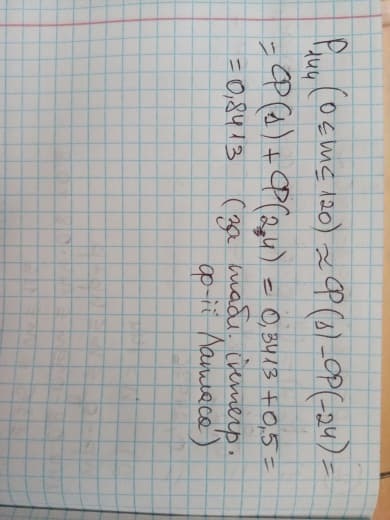 P₁₄₄(0≤m≤120) ≈ Ф(1)-Ф(-24) =
= Ф(1) + Ф(24) = 0,3413 + 0,5 =
= 0,8413 (за табл. інтегр.
ф-ії Лапласа)